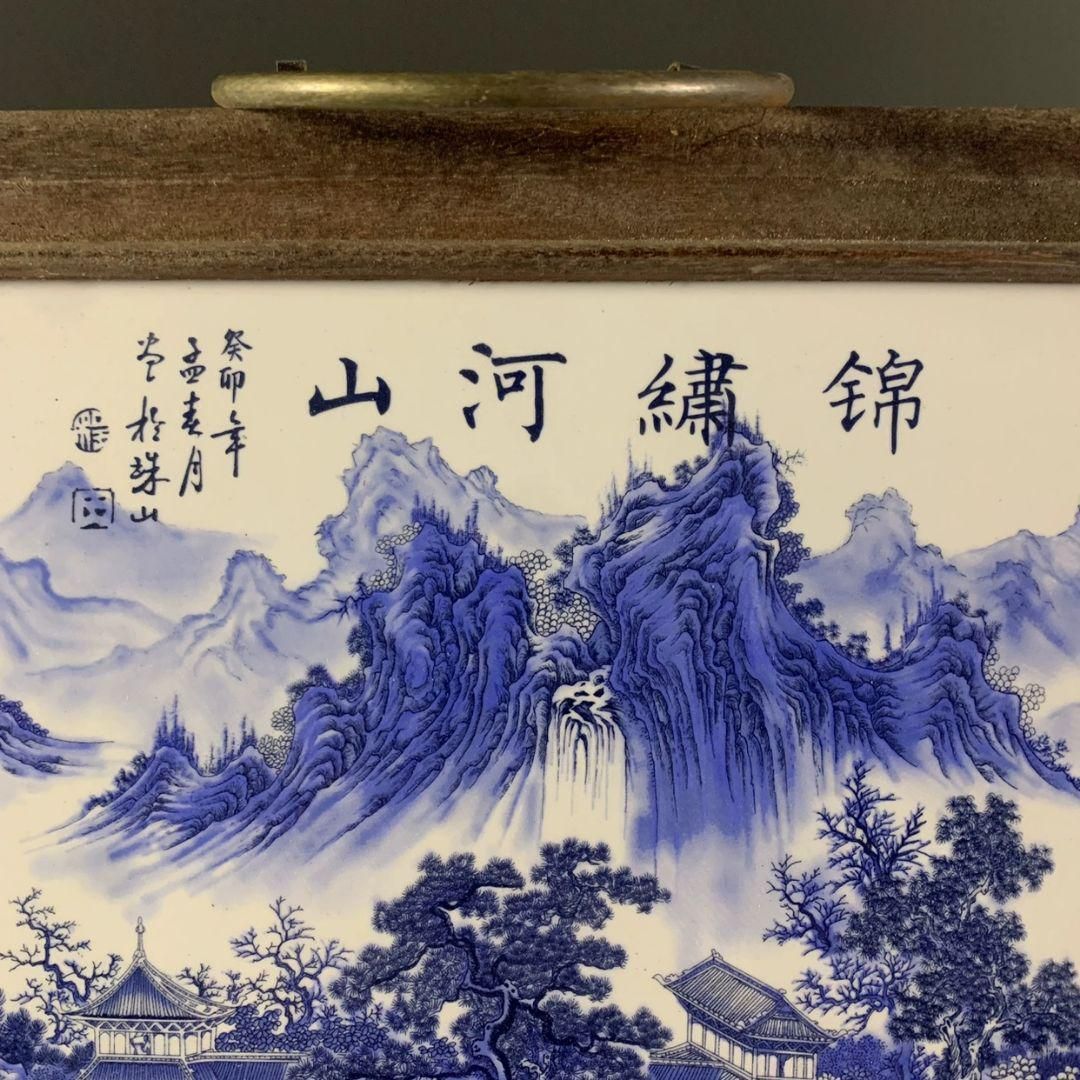 锦繡河山
癸卯年
孟春月
於珠山